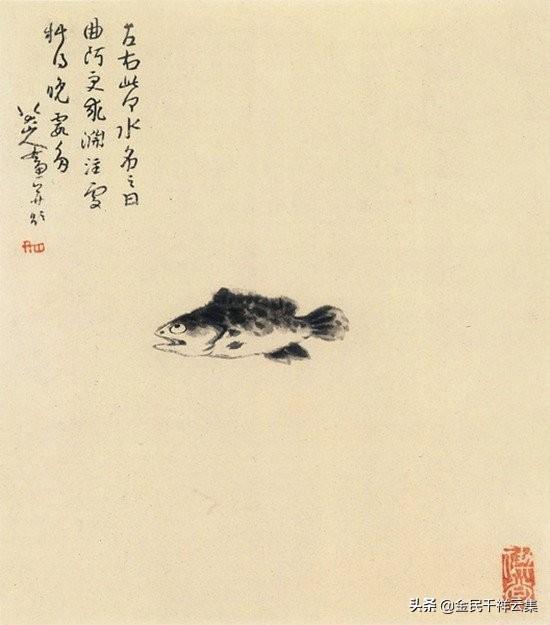 左右此何水名之曰
曲阿更求淵注處
料得晚霞多
八大山人畫并題
头条 @金民千祥云集